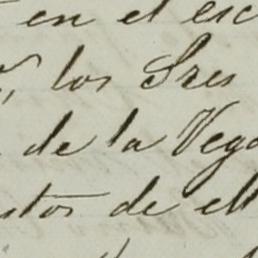 en el esc
los Sres
de la Vega
stos de el